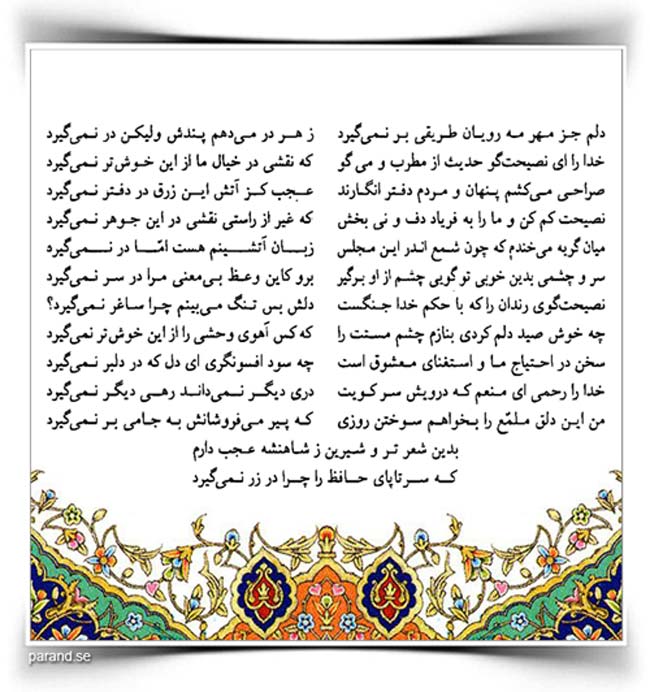 دلم جز مهر مه رویان طریقی بر نمی‌گیرد ز هر در می‌دهم پندش ولیکن در نمی‌گیرد
خدا را ای نصیحت‌گو حدیث از مطرب و می گو که نقشی در خیال ما از این خوش‌تر نمی‌گیرد
صراحی می‌کشم پنهان و مردم دفتر انگارند عجب کز آتش این زرق در دفتر نمی‌گیرد
نصیحت کم کن و ما را به فریاد دف و نی بخش که غیر از راستی نقشی در این جوهر نمی‌گیرد
میان گریه می‌خندم که چون شمع اندر این مجلس زبان آتشینم هست امّا در نمی‌گیره
سر و چشمی بدین خوبی تو گویی چشم از او برگیر برو کاین وعظ بی‌معنی مرا در سر نمی‌گیرد
نصیحت‌گوی رندان را که با حکم خدا جنگست دلش بس تنگ می‌بینم چرا ساغر نمی‌گیرد؟
چه خوش صید دلم کردی بنازم چشم مستت را که کس آهوی وحشی را از این خوش‌تر نمی‌گیرد
سخن در احتیاج ما و استغنای معشوق است چه سود افسونگری ای دل که در دلبر نمی‌گیرد
خدا را رحمی ای منعم که درویش سر کویت دری دیگر نمی‌داند رهی دیگر نمی‌گیرد
من این دلق ملمّع را بخواهم سوختن روزی که پیر می‌فروشانش به جامی بر نمی‌گیرد
بدین شعر تر و شیرین ز شاهنشه عجب دارم
که سر تا پای حافظ را چرا در زر نمی‌گیرد
parand.se